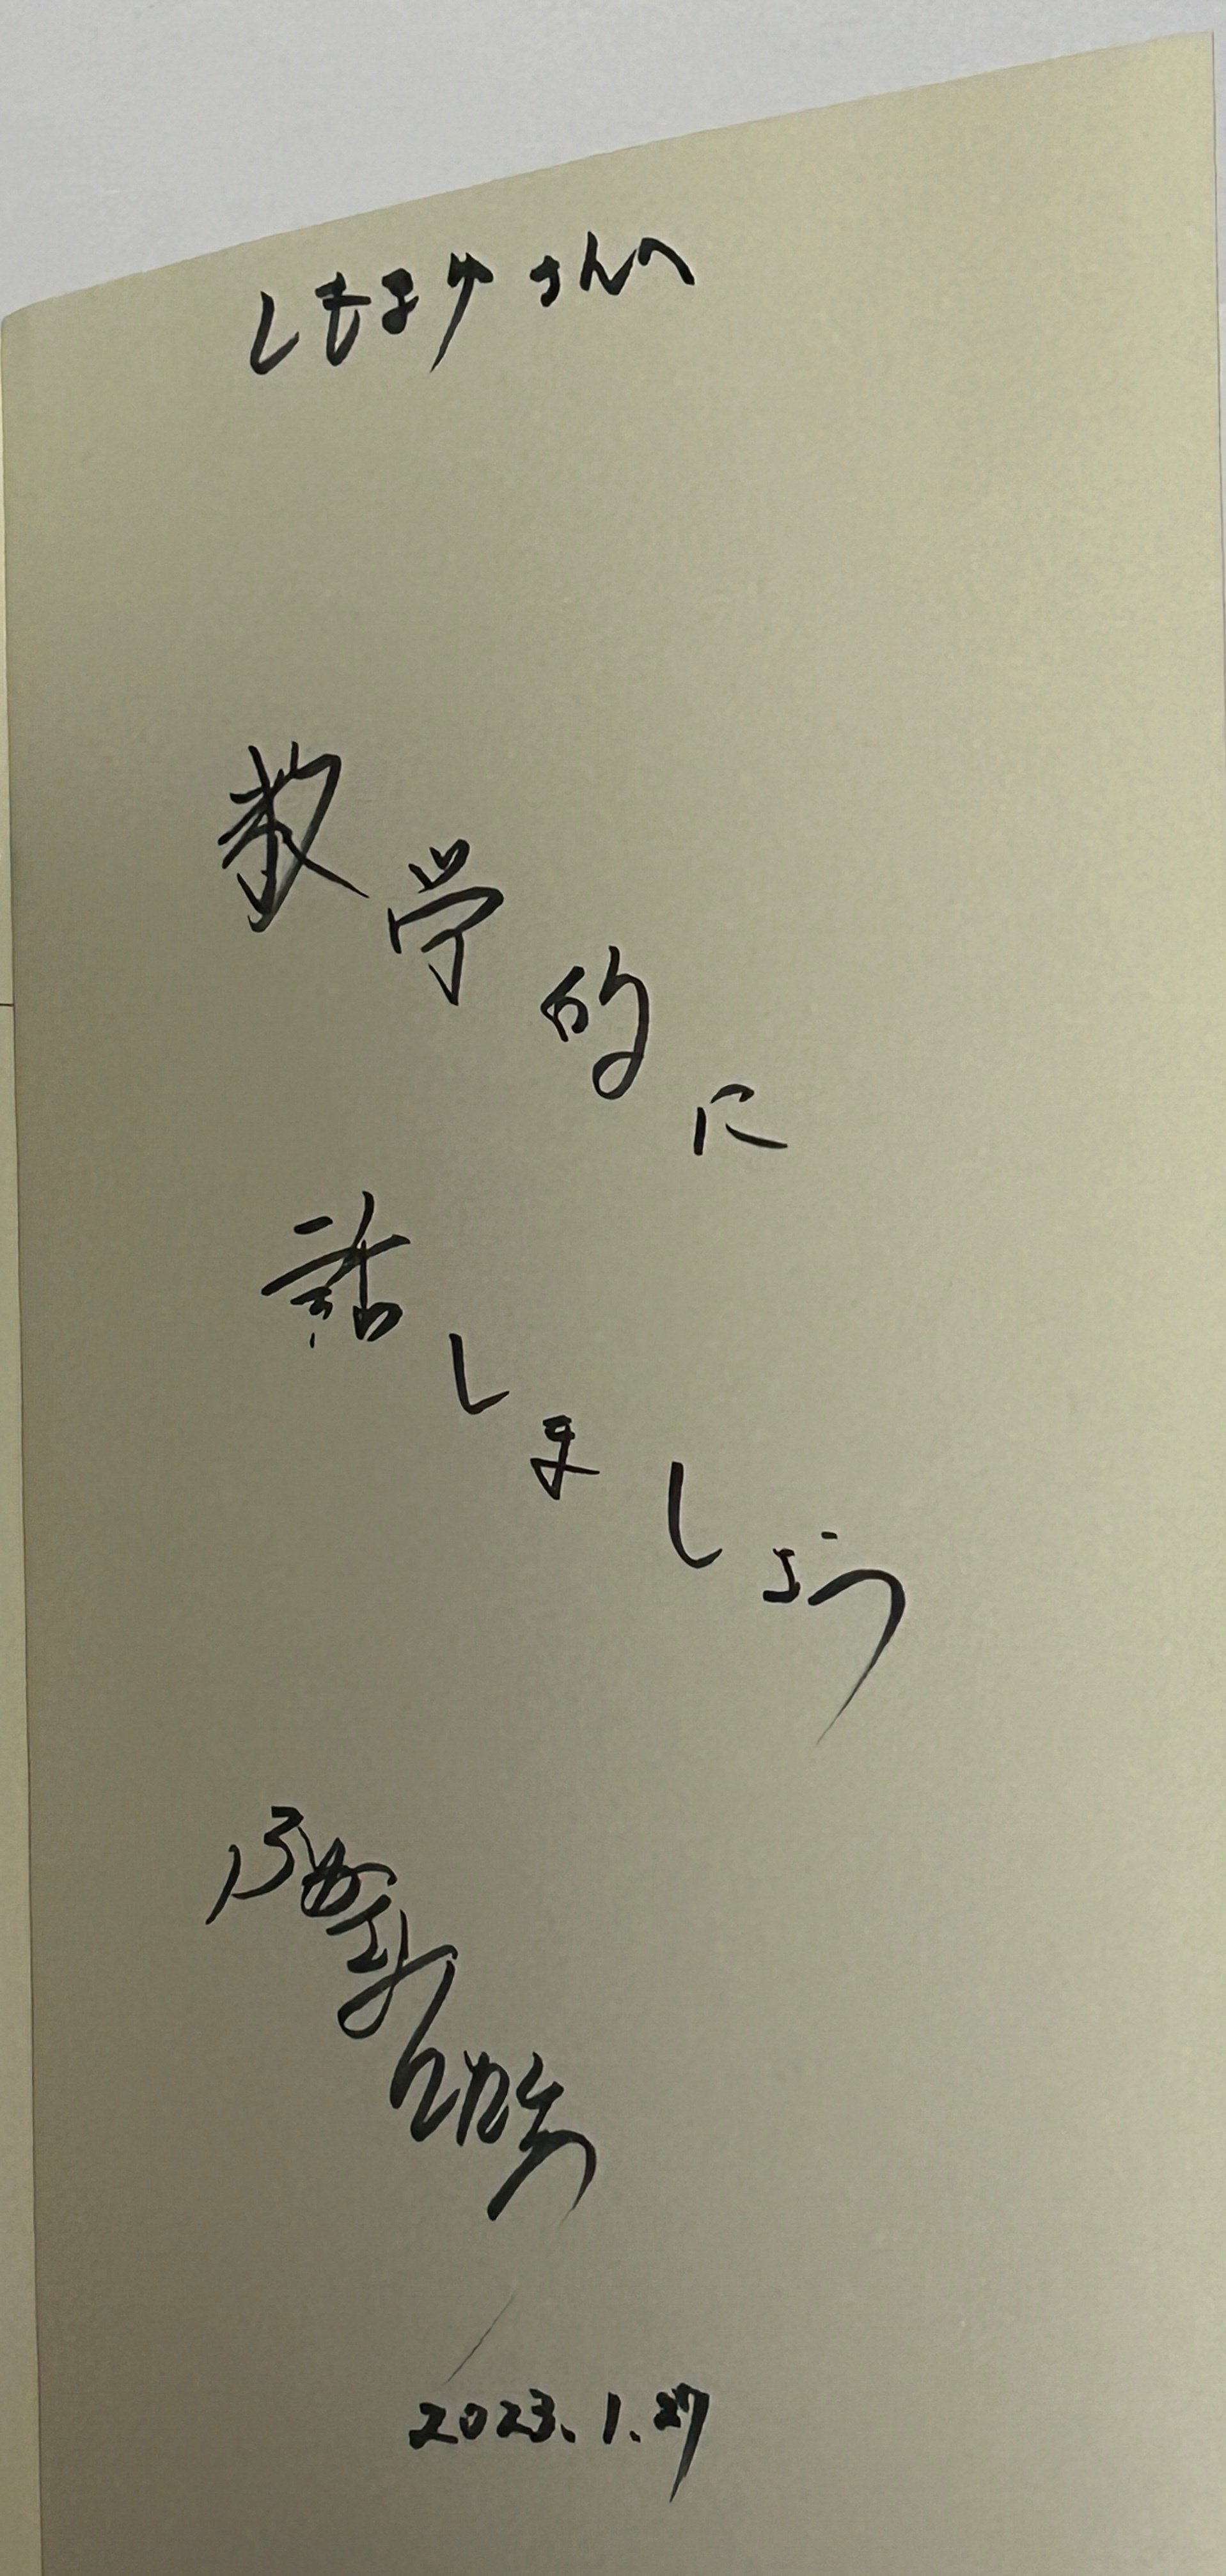 しもまゆさんへ
数学的に
話しましょう
2023.1.27